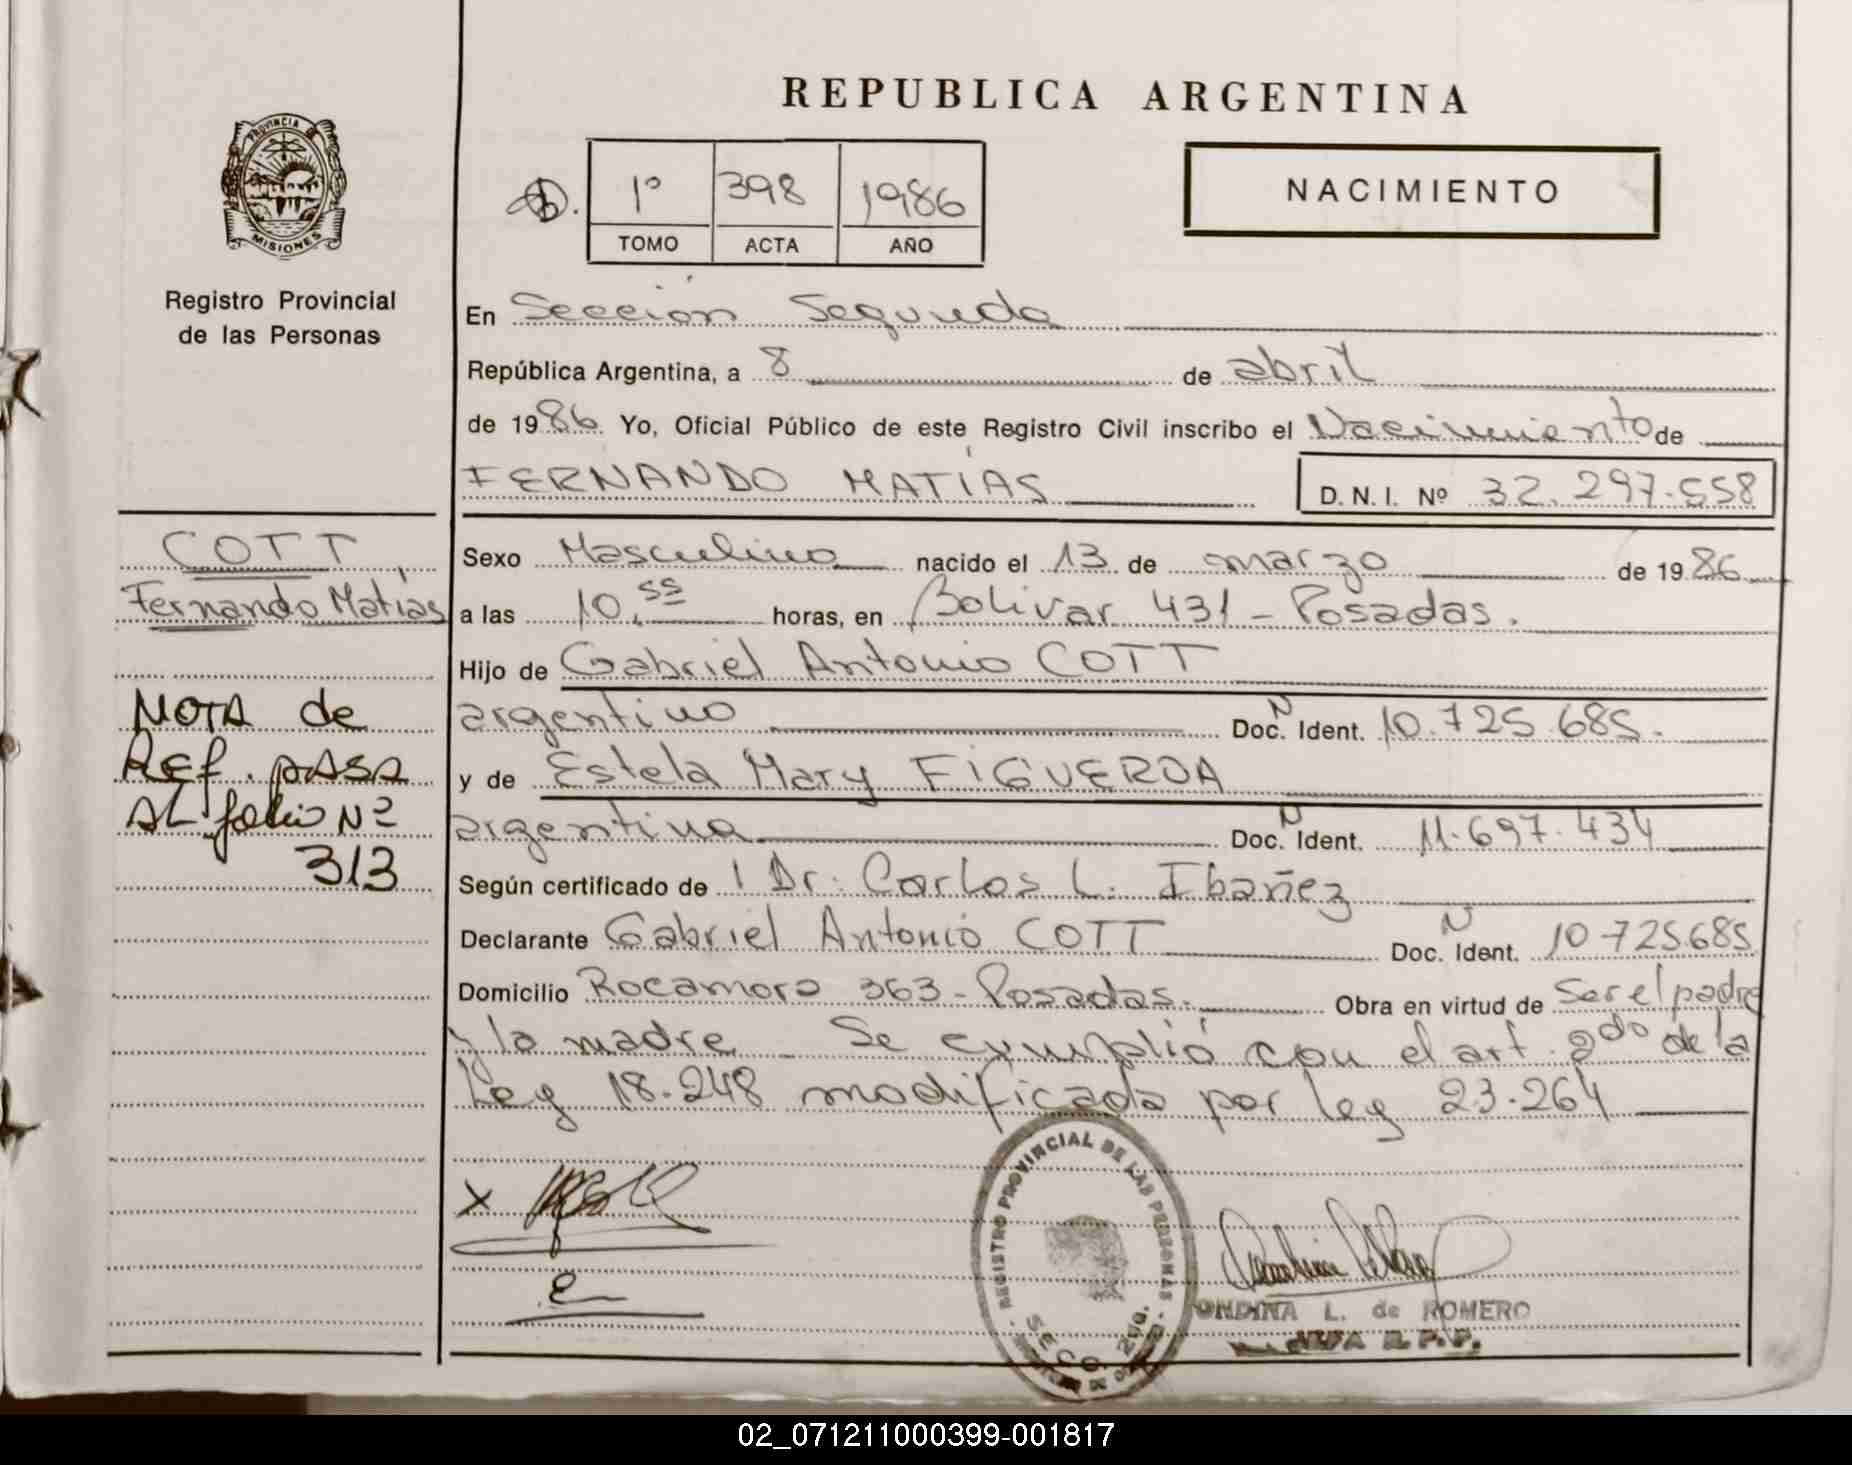 REPUBLICA ARGENTINA
PROVINCIA DE
MISIONES
Registro Provincial
de las Personas
1º 398 1986
TOMO ACTA AÑO
NACIMIENTO
En Sección Segunda
República Argentina, a 8 de abril
de 1986 Yo, Oficial Público de este Registro Civil inscribo el Nacimiento de
FERNANDO MATÍAS
D.N.I. Nº 32.297.558
COTT
Fernando Matías
NOTA de
Ref. pasa
al folio Nº
313
Sexo Masculino nacido el 13 de marzo de 1986
a las 10,55 horas, en Bolivar 431 - Posadas.
Hijo de Gabriel Antonio COTT
argentino Doc. N Ident. 10.725.685.
y de Estela Mary FIGUEROA
argentina Doc. N Ident. 11.697.434
Según certificado de Dr. Carlos L. Ibañez
Declarante Gabriel Antonio COTT Doc. N Ident. 10.725.685
Domicilio Rocamora 363 - Posadas. Obra en virtud de Ser el padre
y la madre - Se cumplió con el art. 2do de la
Ley 18.248 modificada por ley 23.264
X
REGISTRO PROVINCIAL DE LAS PERSONAS
SECC. 2DA.
ONDINA L. de ROMERO
R.P.P.
02_071211000399-001817